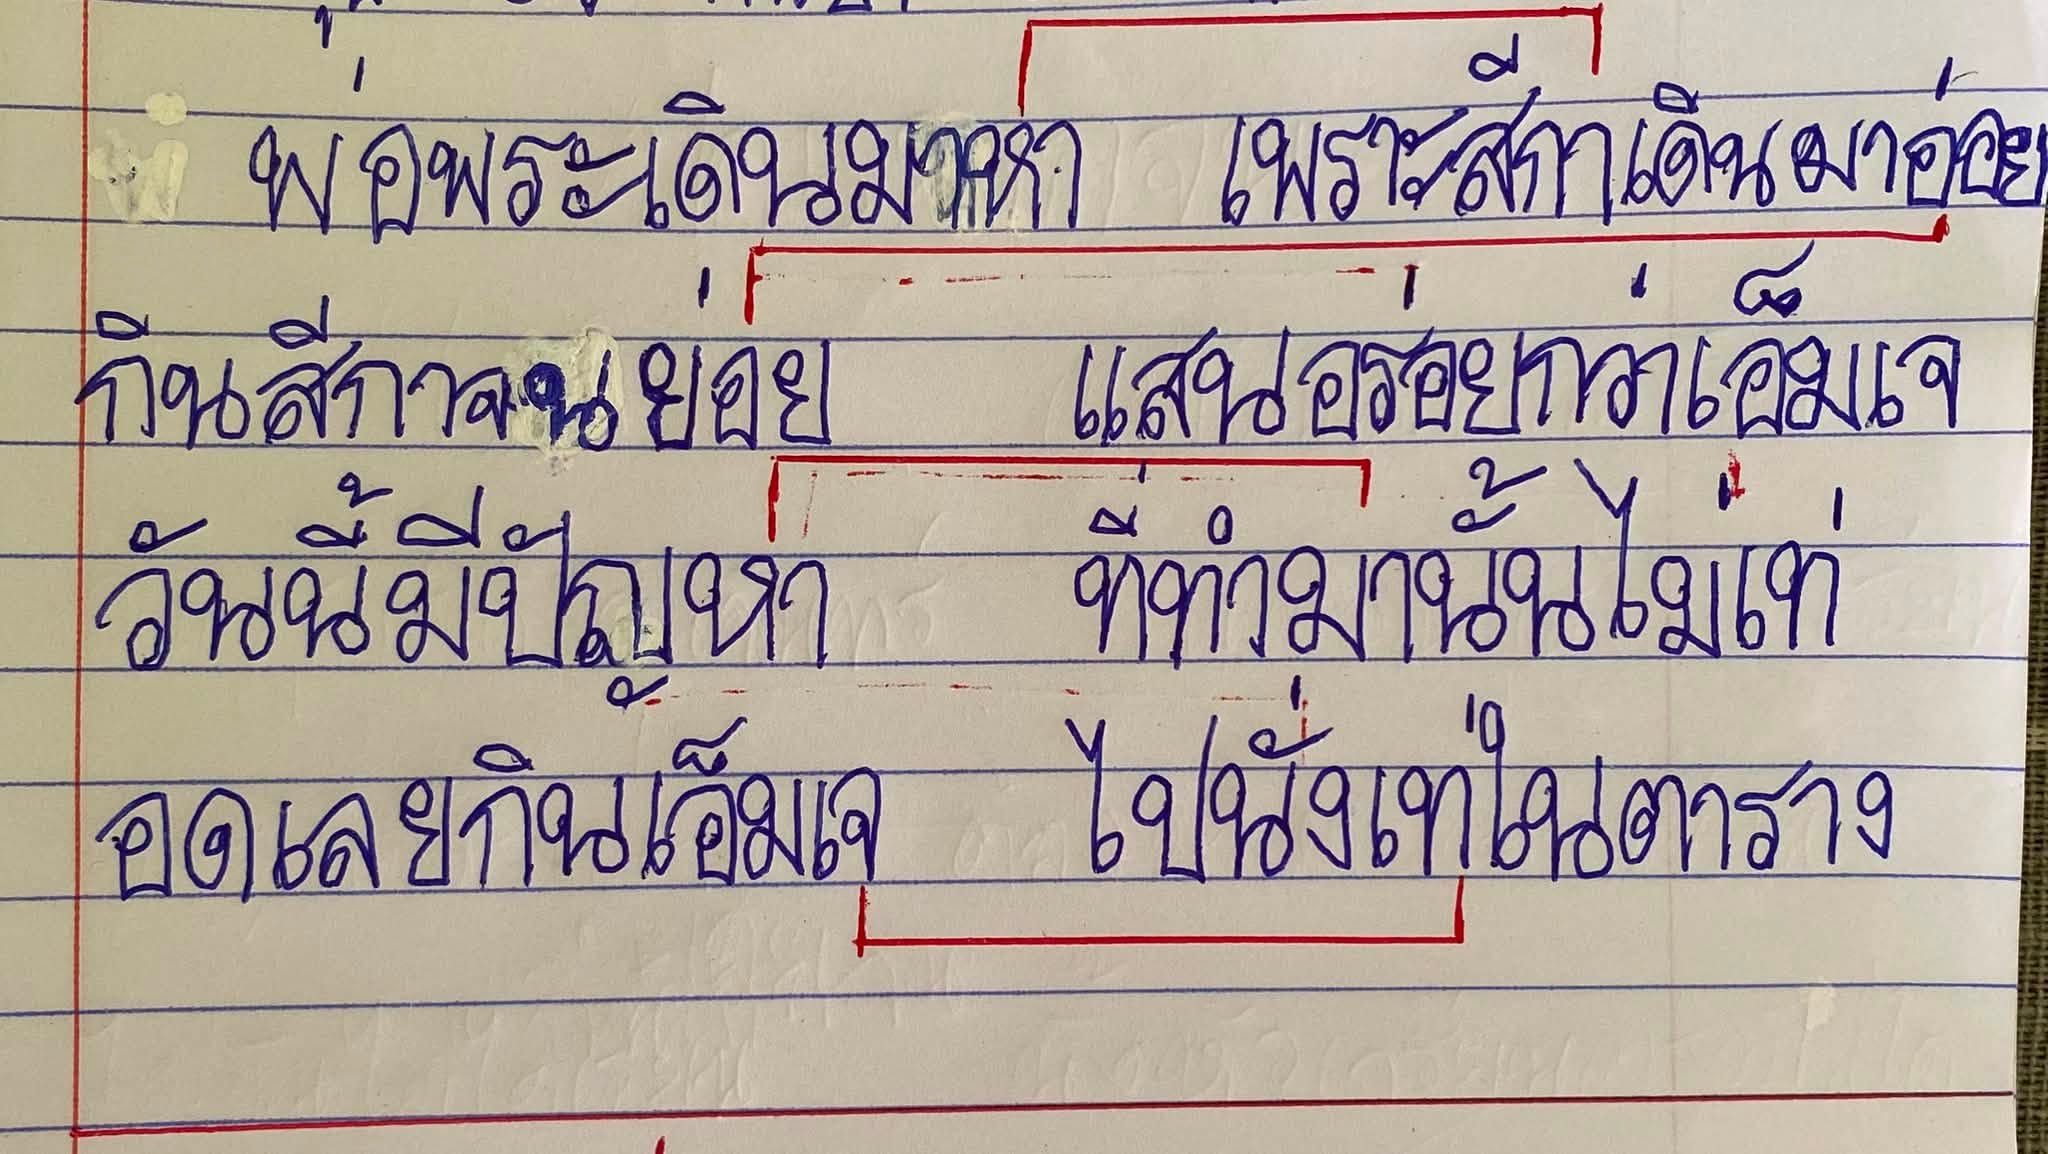 พ่อพระเดินมาหา เพราะสีกาเดินมาอ่อย
กินสีกาจนย่อย แสนอร่อยกว่าเอ็มเจ
วันนี้มีปัญหา ที่ทำมานั้นไม่เท่
อดเลยกินเอ็มเจ ไปนั่งเท่ในตาราง